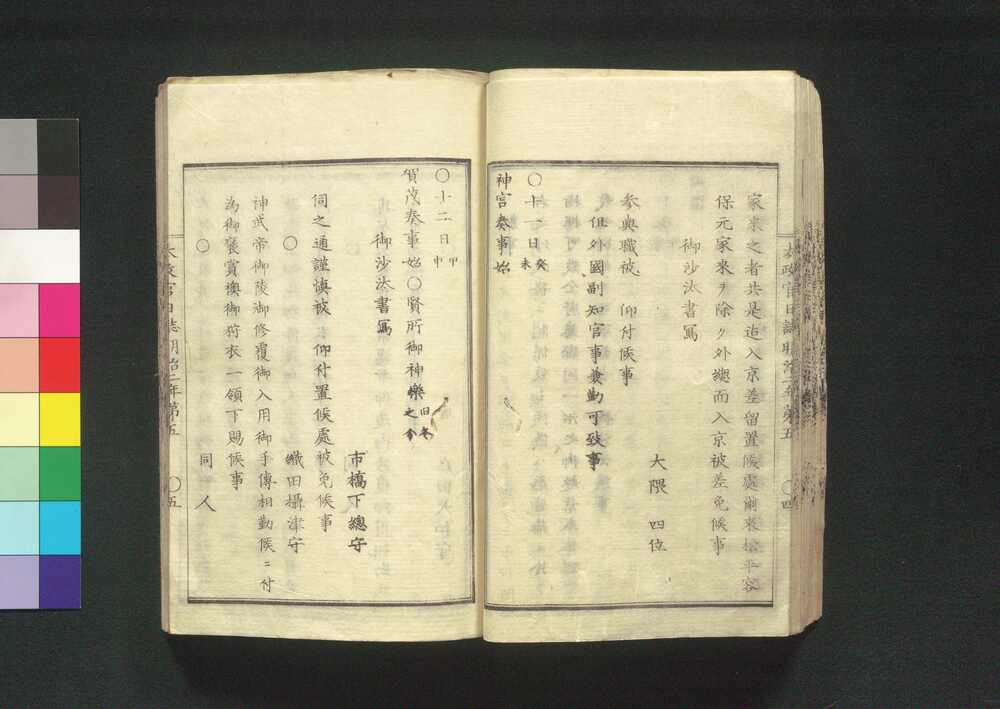 家來之者共是迄入京差留置候處爾來松平容
保元家來ヲ除ク外總而入京被差免候事
御沙汰書寫
大隈四位
參與職被 仰付候事
但外國副知官事兼勤可致事
○十一日癸未
神宮奏事始
太政官日誌明治二年第五 ○四
○十二日甲申
賀茂奏事始○賢所御神樂舊冬之分
御沙汰書寫
市橋下總守
伺之通謹愼被 仰付置候處被免候事
○ 織田攝津守
神武帝御陵御修覆御入用御手傳相勤候ニ付
為御褒賞襖御狩衣一領下賜候事
○ 同人
太政官日誌明治二年第五 ○五